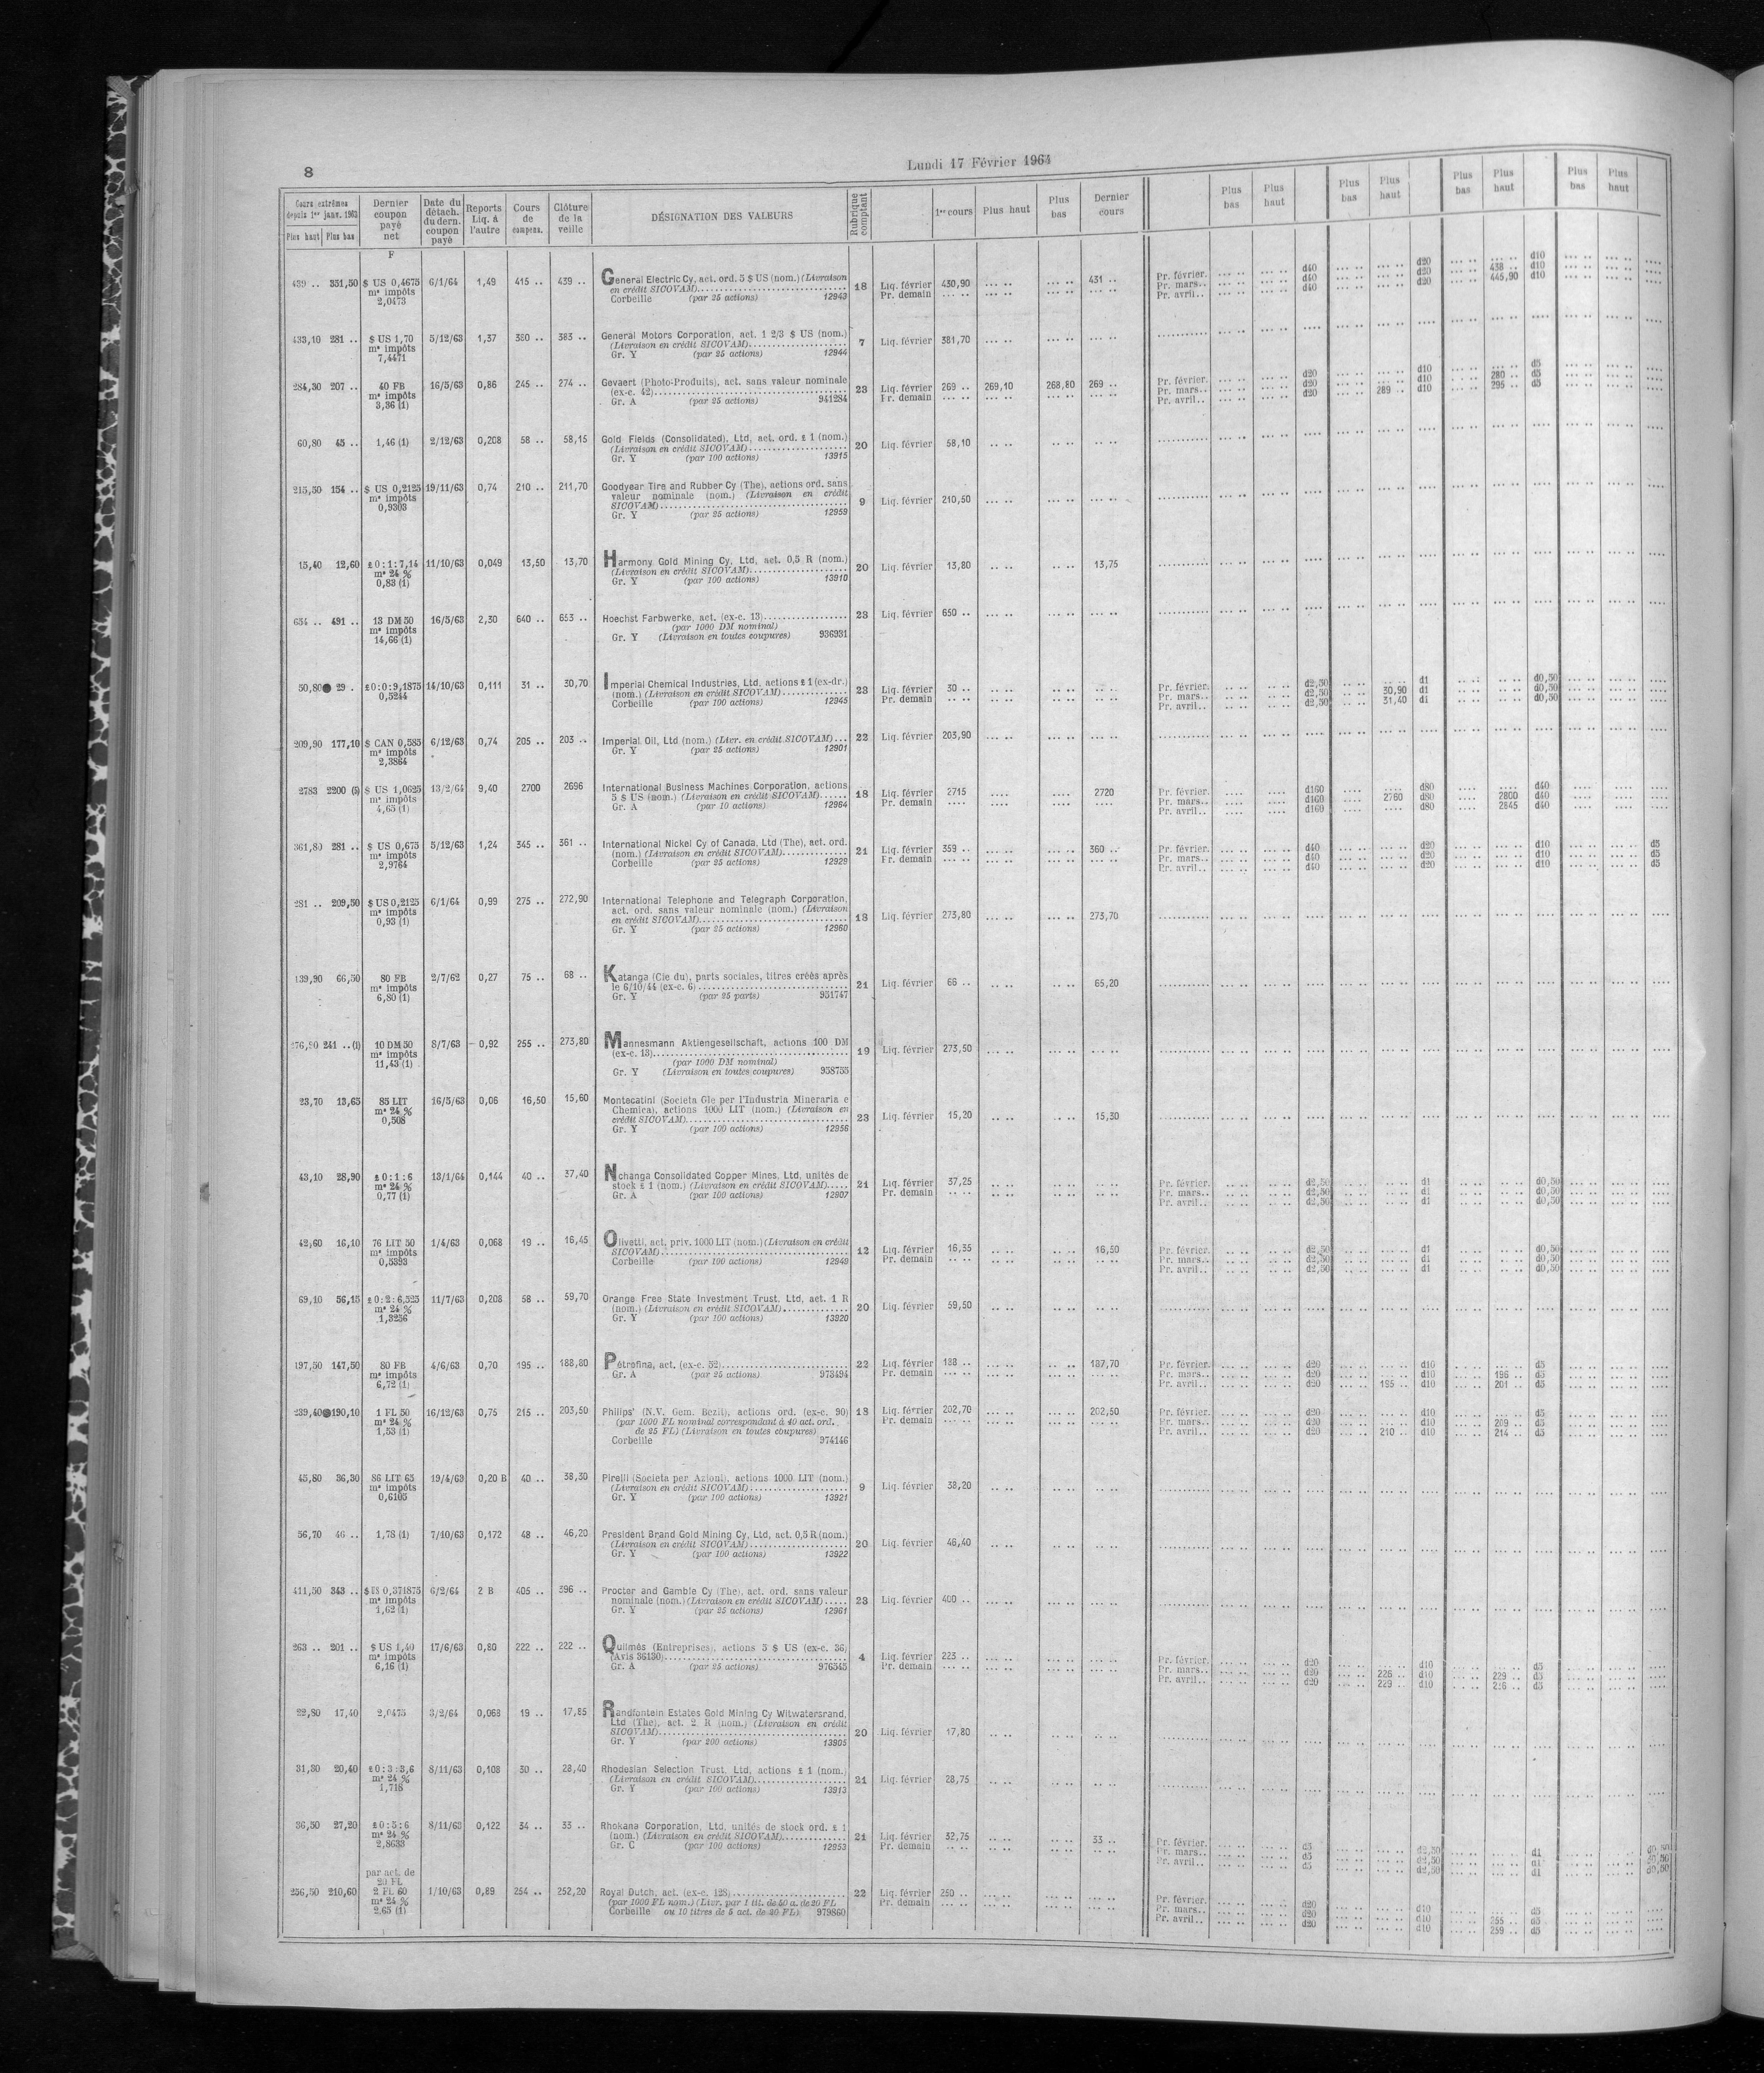 8
Lundi 17 Février 1964
Cours extrêmes depuis 1er janv. 1963 Plus haut Plus bas | Dernier coupon payé net | Date du détach. du dern. coupon payé | Reports Liq. à l'autre | Cours de compens. | Clôture de la veille | DÉSIGNATION DES VALEURS | Rubrique comptant | 1er cours | Plus haut | Plus bas | Dernier cours | Plus bas | Plus haut | Plus bas | Plus haut | Plus bas | Plus haut | Plus bas | Plus haut
F
439 .. 331,50 $ US 0,4675 6/1/64 1,49 415 .. 439 .. General Electric Cy, act. ord. 5 $ US (nom.) (Livraison
m/s impôts en crédit SICOVAM) 18 Liq. février 430,90 ... .. ... .. 431 .. Pr. février. d40 d20 d10
2,0473 Corbeille (par 25 actions) 12943 Pr. demain Pr. mars.. d40 d20 438 .. d10
Pr. avril.. d40 d20 445,90 d10
433,10 281 .. $ US 1,70 5/12/63 1,37 380 .. 383 .. General Motors Corporation, act. 1 2/3 $ US (nom.)
m/s impôts (Livraison en crédit SICOVAM) 7 Liq. février 381,70
7,4471 Gr. Y (par 25 actions) 12944
284,30 207 .. 40 FB 16/5/63 0,86 245 .. 274 .. Gevaert (Photo-Produits), act. sans valeur nominale
m/s impôts (ex-c. 42) 23 Liq. février 269 .. 269,10 268,80 269 .. Pr. février. d20 d10 d5
3,36 (1) Gr. A (par 25 actions) 941284 Pr. demain Pr. mars.. d20 d10 280 .. d5
Pr. avril.. d20 289 .. d10 295 .. d5
60,80 45 .. 1,46 (1) 2/12/63 0,208 58 .. 58,15 Gold Fields (Consolidated), Ltd, act. ord. £ 1 (nom.)
(Livraison en crédit SICOVAM) 20 Liq. février 58,10
Gr. Y (par 100 actions) 13915
215,50 154 .. $ US 0,2125 19/11/63 0,74 210 .. 211,70 Goodyear Tire and Rubber Cy (The), actions ord. sans
m/s impôts valeur nominale (nom.) (Livraison en crédit
0,9303 SICOVAM) 9 Liq. février 210,50
Gr. Y (par 25 actions) 12959
15,40 12,60 £ 0:1:7,14 11/10/63 0,049 13,50 13,70 Harmony Gold Mining Cy, Ltd, act. 0,5 R (nom.)
m/s 24 % (Livraison en crédit SICOVAM) 20 Liq. février 13,80 13,75
0,83 (1) Gr. Y (par 100 actions) 13910
654 .. 491 .. 13 DM 50 16/5/63 2,30 640 .. 653 .. Hoechst Farbwerke, act. (ex-c. 13) 23 Liq. février 650 ..
m/s impôts (par 1000 DM nominal)
14,66 (1) Gr. Y (Livraison en toutes coupures) 936931
50,80 29 . £ 0:0:9,1875 14/10/63 0,111 31 .. 30,70 Imperial Chemical Industries, Ltd, actions £ 1 (ex-dr.)
0,5244 (nom.) (Livraison en crédit SICOVAM) 23 Liq. février 30 .. Pr. février. d2,50 d1 d0,50
Corbeille (par 100 actions) 12945 Pr. demain Pr. mars.. d2,50 30,90 d1 d0,50
Pr. avril.. d2,50 31,40 d1 d0,50
209,90 177,10 $ CAN 0,585 6/12/63 0,74 205 .. 203 .. Imperial Oil, Ltd (nom.) (Livr. en crédit SICOVAM) 22 Liq. février 203,90
m/s impôts Gr. Y (par 25 actions) 12901
2,3864
2783 2200 (5) $ US 1,0625 13/2/64 9,40 2700 2696 International Business Machines Corporation, actions
m/s impôts 5 $ US (nom.) (Livraison en crédit SICOVAM) 18 Liq. février 2715 2720 Pr. février. d160 d80 d40
4,65 (1) Gr. A (par 10 actions) 12964 Pr. demain Pr. mars.. d160 2760 d80 2800 d40
Pr. avril.. d160 d80 2845 d40
361,80 281 .. $ US 0,675 5/12/63 1,24 345 .. 361 .. International Nickel Cy of Canada, Ltd (The), act. ord.
m/s impôts (nom.) (Livraison en crédit SICOVAM) 21 Liq. février 359 .. 360 .. Pr. février. d40 d20 d10 d5
2,9764 Corbeille (par 25 actions) 12929 Pr. demain Pr. mars.. d40 d20 d10 d5
Pr. avril.. d40 d20 d10 d5
281 .. 209,50 $ US 0,2125 6/1/64 0,99 275 .. 272,90 International Telephone and Telegraph Corporation,
m/s impôts act. ord. sans valeur nominale (nom.) (Livraison
0,93 (1) en crédit SICOVAM) 18 Liq. février 273,80 273,70
Gr. Y (par 25 actions) 12960
139,90 66,50 80 FB 2/7/62 0,27 75 .. 68 .. Katanga (Cie du), parts sociales, titres créés après
m/s impôts le 6/10/44 (ex-c. 6) 21 Liq. février 66 .. 65,20
6,80 (1) Gr. Y (par 25 parts) 951747
276,90 241 .. (1) 10 DM 50 8/7/63 0,92 255 .. 273,80 Mannesmann Aktiengesellschaft, actions 100 DM
m/s impôts (ex-c. 13) 19 Liq. février 273,50
11,43 (1) (par 1000 DM nominal)
Gr. Y (Livraison en toutes coupures) 958755
23,70 13,65 85 LIT 16/5/63 0,06 16,50 15,60 Montecatini (Societa Gle per l'Industria Mineraria e
m/s 24 % Chemica), actions 1000 LIT (nom.) (Livraison en
0,508 crédit SICOVAM) 23 Liq. février 15,20 15,30
Gr. Y (par 100 actions) 12956
43,10 28,90 £ 0:1:6 13/1/64 0,144 40 .. 37,40 Nchanga Consolidated Copper Mines, Ltd, unités de
m/s 24 % stock £ 1 (nom.) (Livraison en crédit SICOVAM) 21 Liq. février 37,25 Pr. février. d2,50 d1 d0,50
0,77 (1) Gr. A (par 100 actions) 12907 Pr. demain Pr. mars.. d2,50 d1 d0,50
Pr. avril.. d2,50 d1 d0,50
42,60 16,10 76 LIT 50 1/4/63 0,068 19 .. 16,45 Olivetti, act. priv. 1000 LIT (nom.) (Livraison en crédit
m/s impôts SICOVAM) 12 Liq. février 16,35 16,50 Pr. février. d2,50 d1 d0,50
0,5393 Corbeille (par 100 actions) 12949 Pr. demain Pr. mars.. d2,50 d1 d0,50
Pr. avril.. d2,50 d1 d0,50
69,10 56,15 £ 0:2:6,525 11/7/63 0,208 58 .. 59,70 Orange Free State Investment Trust, Ltd, act. 1 R
m/s 24 % (nom.) (Livraison en crédit SICOVAM) 20 Liq. février 59,50
1,3256 Gr. Y (par 100 actions) 13920
197,50 147,50 80 FB 4/6/63 0,70 195 .. 188,80 Pétrofina, act. (ex-c. 52) 22 Liq. février 188 .. 187,70 Pr. février. d20 d10 d5
m/s impôts Gr. A (par 25 actions) 973494 Pr. demain Pr. mars.. d20 d10 196 .. d5
6,72 (1) Pr. avril.. d20 195 .. d10 201 .. d5
239,40 190,10 1 FL 50 16/12/63 0,75 215 .. 203,50 Philips' (N.V. Gem. Bezit), actions ord. (ex-c. 90) 18 Liq. février 202,70 202,50 Pr. février. d20 d10 d5
m/s 24 % (par 1000 FL nominal correspondant à 40 act. ord. Pr. demain Pr. mars.. d20 d10 209 .. d5
1,53 (1) de 25 FL) (Livraison en toutes coupures) Pr. avril.. d20 210 .. d10 214 .. d5
Corbeille 974146
45,80 36,30 86 LIT 65 19/4/63 0,20 B 40 .. 38,30 Pirelli (Societa per Azioni), actions 1000 LIT (nom.)
m/s impôts (Livraison en crédit SICOVAM) 9 Liq. février 38,20
0,6105 Gr. Y (par 100 actions) 13921
56,70 46 .. 1,78 (1) 7/10/63 0,172 48 .. 46,20 President Brand Gold Mining Cy, Ltd, act. 0,5 R (nom.)
(Livraison en crédit SICOVAM) 20 Liq. février 46,40
Gr. Y (par 100 actions) 13922
411,50 343 .. $ US 0,371875 6/2/64 2 B 405 .. 396 .. Procter and Gamble Cy (The), act. ord. sans valeur
m/s impôts nominale (nom.) (Livraison en crédit SICOVAM) 23 Liq. février 400 ..
1,62 (1) Gr. Y (par 25 actions) 12961
263 .. 201 .. $ US 1,40 17/6/63 0,80 222 .. 222 .. Quilmès (Entreprises), actions 5 $ US (ex-c. 36)
m/s impôts (Avis 36130) 4 Liq. février 223 .. Pr. février. d20 d10 d5
6,16 (1) Gr. A (par 25 actions) 976545 Pr. demain Pr. mars.. d20 226 .. d10 229 .. d5
Pr. avril.. d20 229 .. d10 226 .. d5
22,80 17,40 2,0475 3/2/64 0,068 19 .. 17,85 Randfontein Estates Gold Mining Cy Witwatersrand,
Ltd (The), act. 2 R (nom.) (Livraison en crédit
SICOVAM) 20 Liq. février 17,80
Gr. Y (par 200 actions) 13905
31,80 20,40 £ 0:3:3,6 8/11/63 0,108 30 .. 28,40 Rhodesian Selection Trust, Ltd, actions £ 1 (nom.)
m/s 24 % (Livraison en crédit SICOVAM) 21 Liq. février 28,75
1,718 Gr. Y (par 100 actions) 13913
36,50 27,20 £ 0:5:6 8/11/63 0,122 34 .. 33 .. Rhokana Corporation, Ltd, unités de stock ord. £ 1
m/s 24 % (nom.) (Livraison en crédit SICOVAM) 21 Liq. février 32,75 33 .. Pr. février. d5 d2,50 d1 d0,50
2,8633 Gr. C (par 100 actions) 12953 Pr. demain Pr. mars.. d5 d2,50 d1 d0,50
Pr. avril.. d5 d2,50 d1 d0,50
par act. de
20 FL
256,50 210,60 2 FL 60 1/10/63 0,89 254 .. 252,20 Royal Dutch, act. (ex-c. 128) 22 Liq. février 250 .. Pr. février. d20 d10 d5
m/s 24 % (par 1000 FL nom.) (Livr. par 1 tit. de 50 a. de 20 FL Pr. demain Pr. mars.. d20 d10 255 .. d5
2,65 (1) Corbeille ou 10 titres de 5 act. de 20 FL) 979860 Pr. avril.. d20 d10 259 .. d5